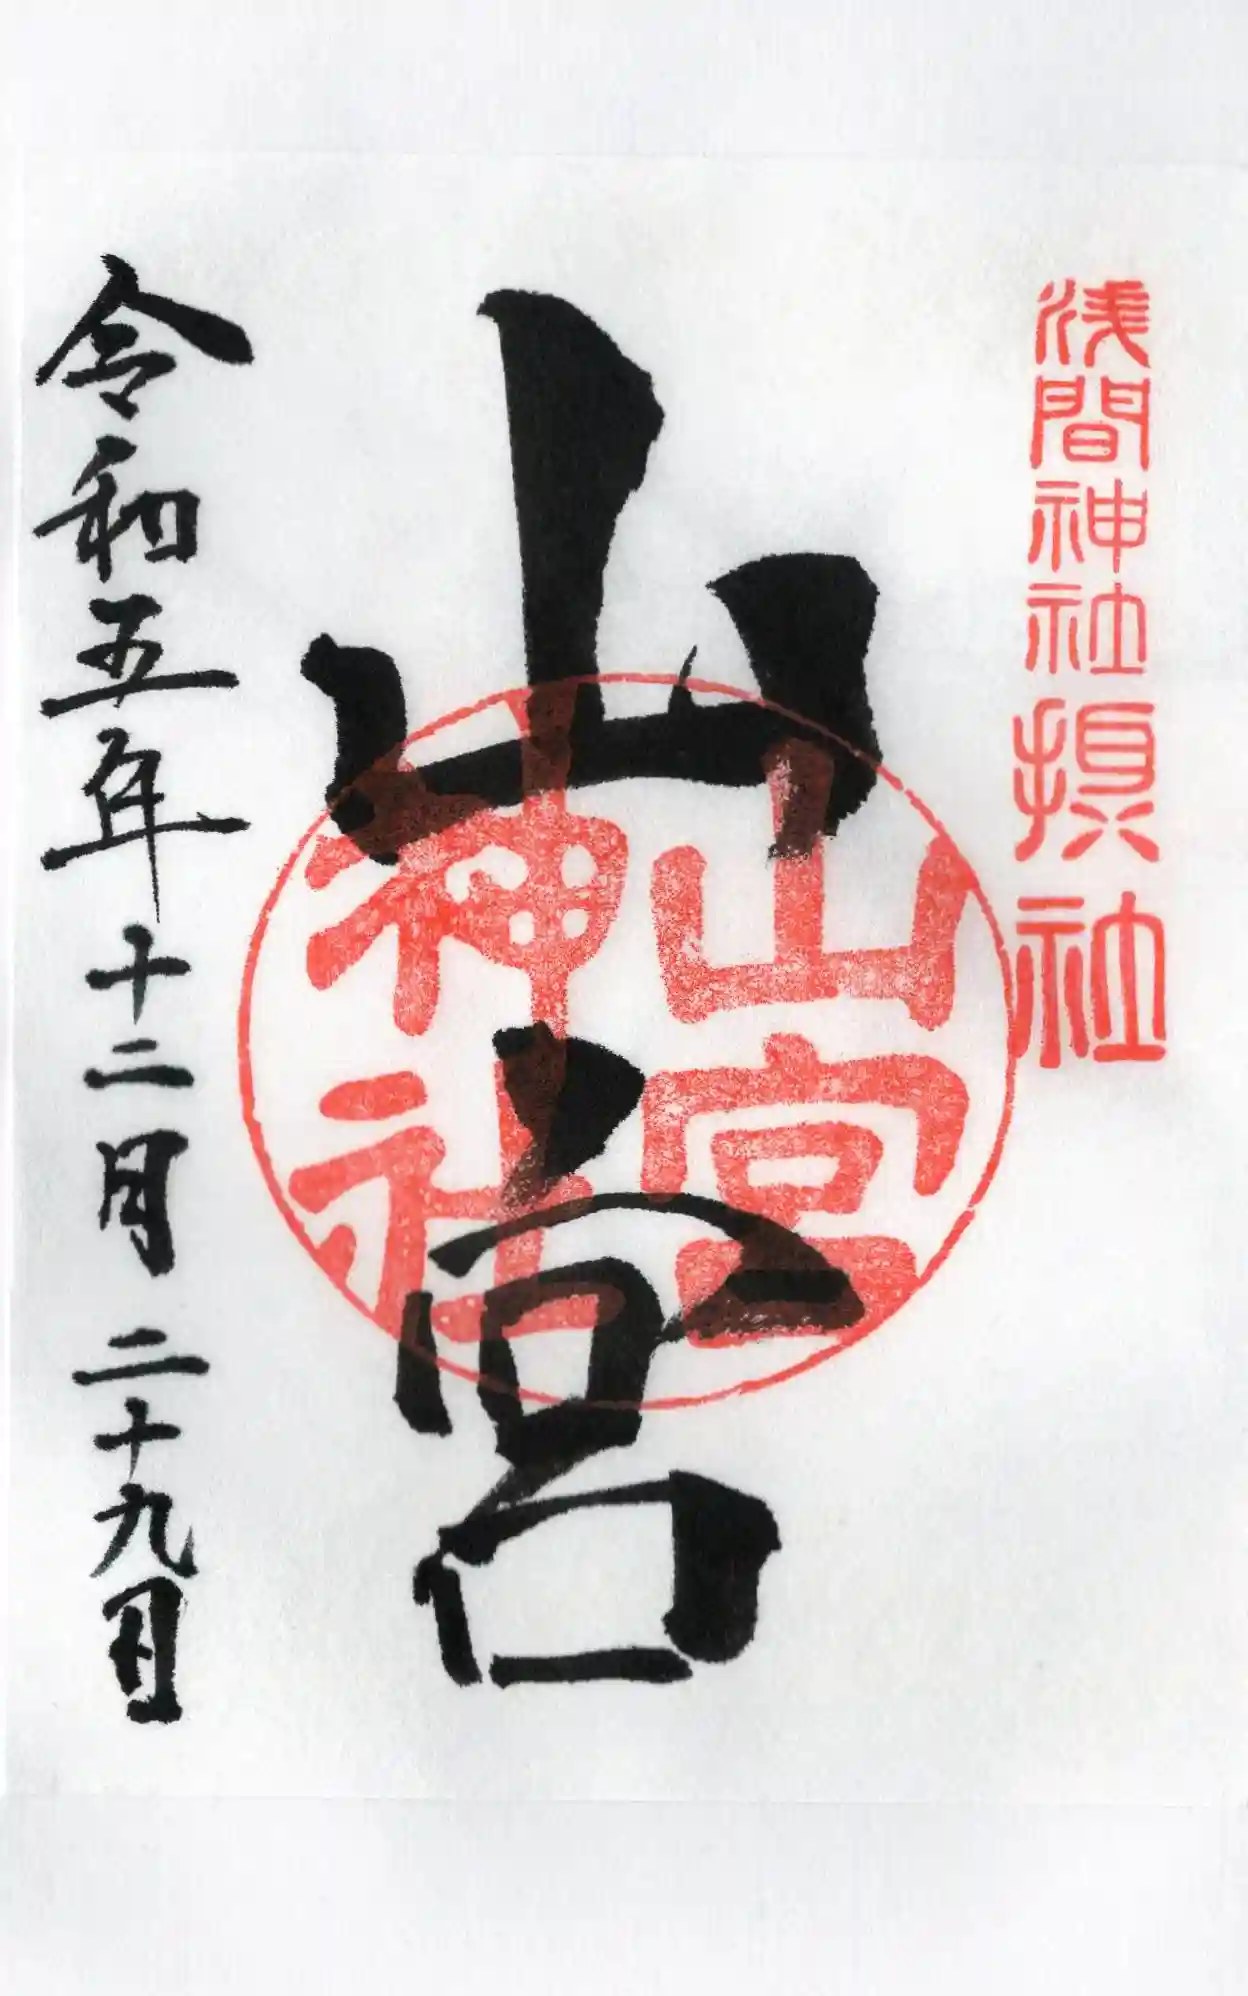 浅間神社摂社
山宮
山宮
神社
令和五年十二月二十九日